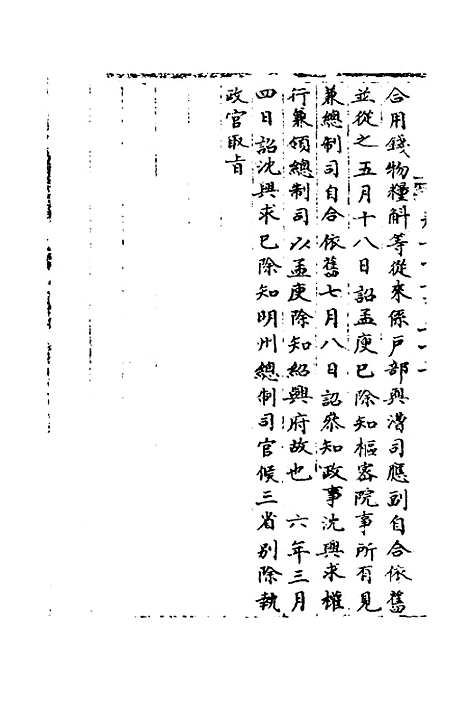 合用錢物糧斛等從來係戶部與漕司應副自合依舊
並從之五月十八日詔孟庾已除知樞密院事所有見
兼總制司自合依舊七月八日詔參知政事沈與求權
行兼領總制司以孟庾除知紹興府故也 六年三月
四日詔沈與求已除知明州總制司官候三省別除執
政官取旨